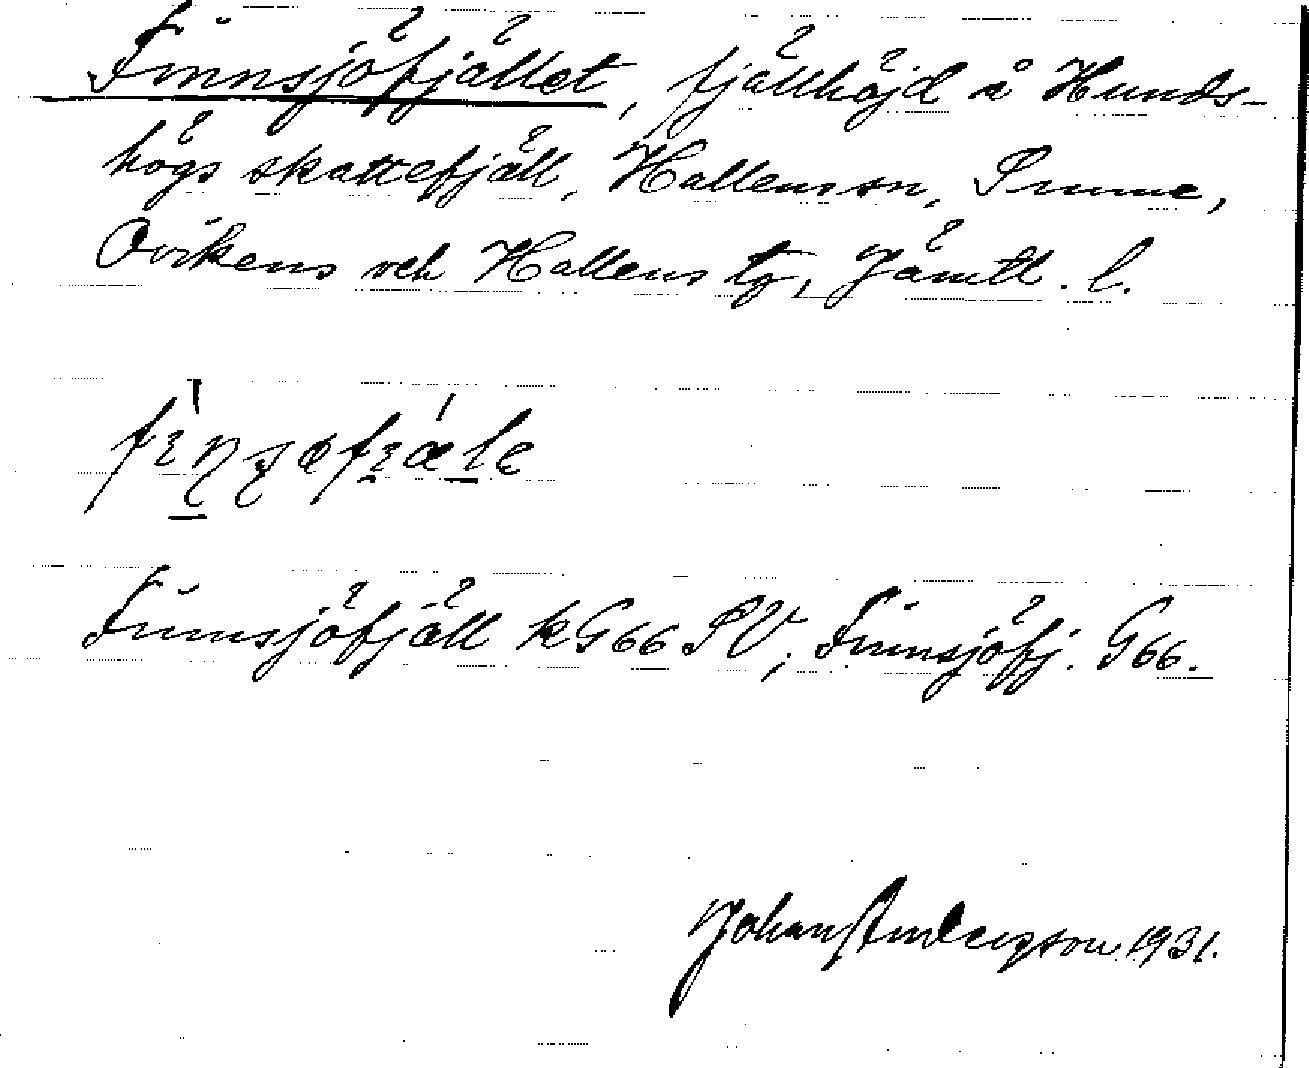 Finnsjöfjället, fjällhöjd å Hunds-
högs skattefjäll, Hallens sn, Sunne,
Ovikens och Hallens tg, Jämtl. l.
Finnsjöfjäll kG66 SV; Finnsjöfj. G66.
Johan Anderzson 1931.